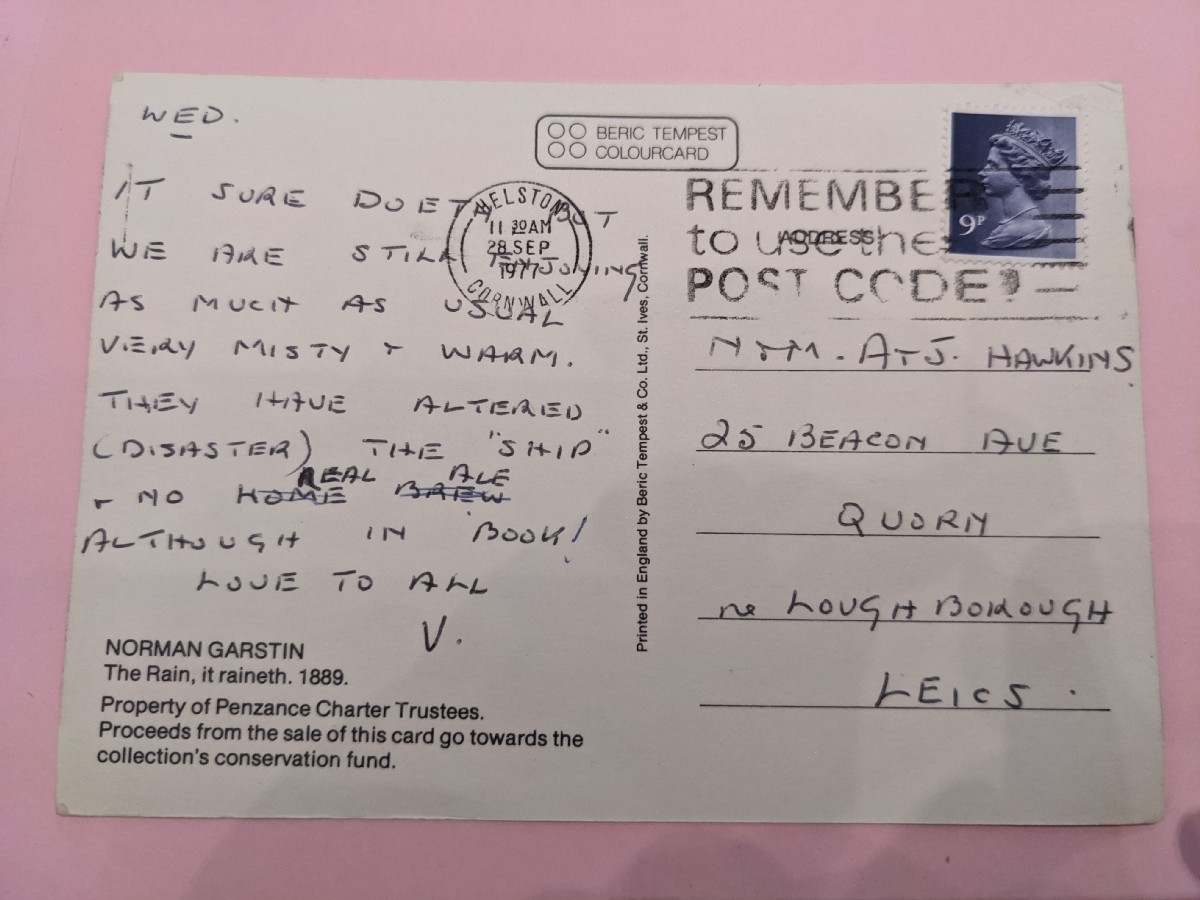 WED.
BERIC TEMPEST
COLOURCARD
IT SURE DOETH BUT
WE ARE STILL ENJOYING
AS MUCH AS USUAL
VERY MISTY + WARM.
THEY HAVE ALTERED
(DISASTER) THE "SHIP"
REAL ALE
+ NO HOME BREW
ALTHOUGH IN BOOK!
LOVE TO ALL
V.
NORMAN GARSTIN
The Rain, it raineth. 1889.
Property of Penzance Charter Trustees.
Proceeds from the sale of this card go towards the
collection's conservation fund.
HELSTON
11 30AM
28 SEP
1977
CORNWALL
Printed in England by Beric Tempest & Co. Ltd., St. Ives, Cornwall.
REMEMBER
to use the
POST CODE
ADDRESS
9P
N+M. A+J. HAWKINS
25 BEACON AVE
QUORN
nr LOUGHBOROUGH
LEICS.